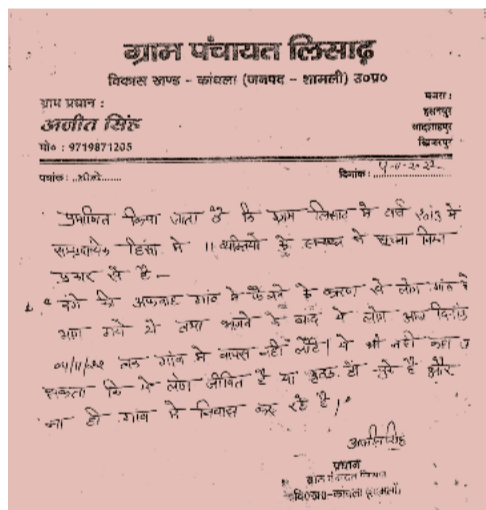 ग्राम पंचायत लिसाढ़
विकास खण्ड - कांधला (जनपद - शामली) उ०प्र०
ग्राम प्रधान :
अजीत सिंह
मो० : 9719871205
मजरा :
हसनपुर
खिजरपुर
पत्रांक :
दिनांक : 4-11-2022
प्रमाणित किया जाता है कि ग्राम लिसाढ़ में वर्ष 2013 में
साम्प्रदायिक हिंसा में 11 व्यक्तियों के सम्बन्ध में सूचना निम्न
प्रकार से है -
दंगे की अफवाह गांव में फैलने के कारण से लोग गांव से
भाग गये थे तथा भागने के बाद ये लोग आज दिनांक
04/11/022 तक गांव में वापस नहीं लौटे। ये भी नहीं कहा जा
सकता कि ये लोग जीवित हैं या मृतक हो चुके हैं और
ना ही गांव में निवास कर रहे हैं।
अजीत सिंह
प्रधान
ग्राम पंचायत लिसाढ़
वि०ख०-कांधला (शामली)